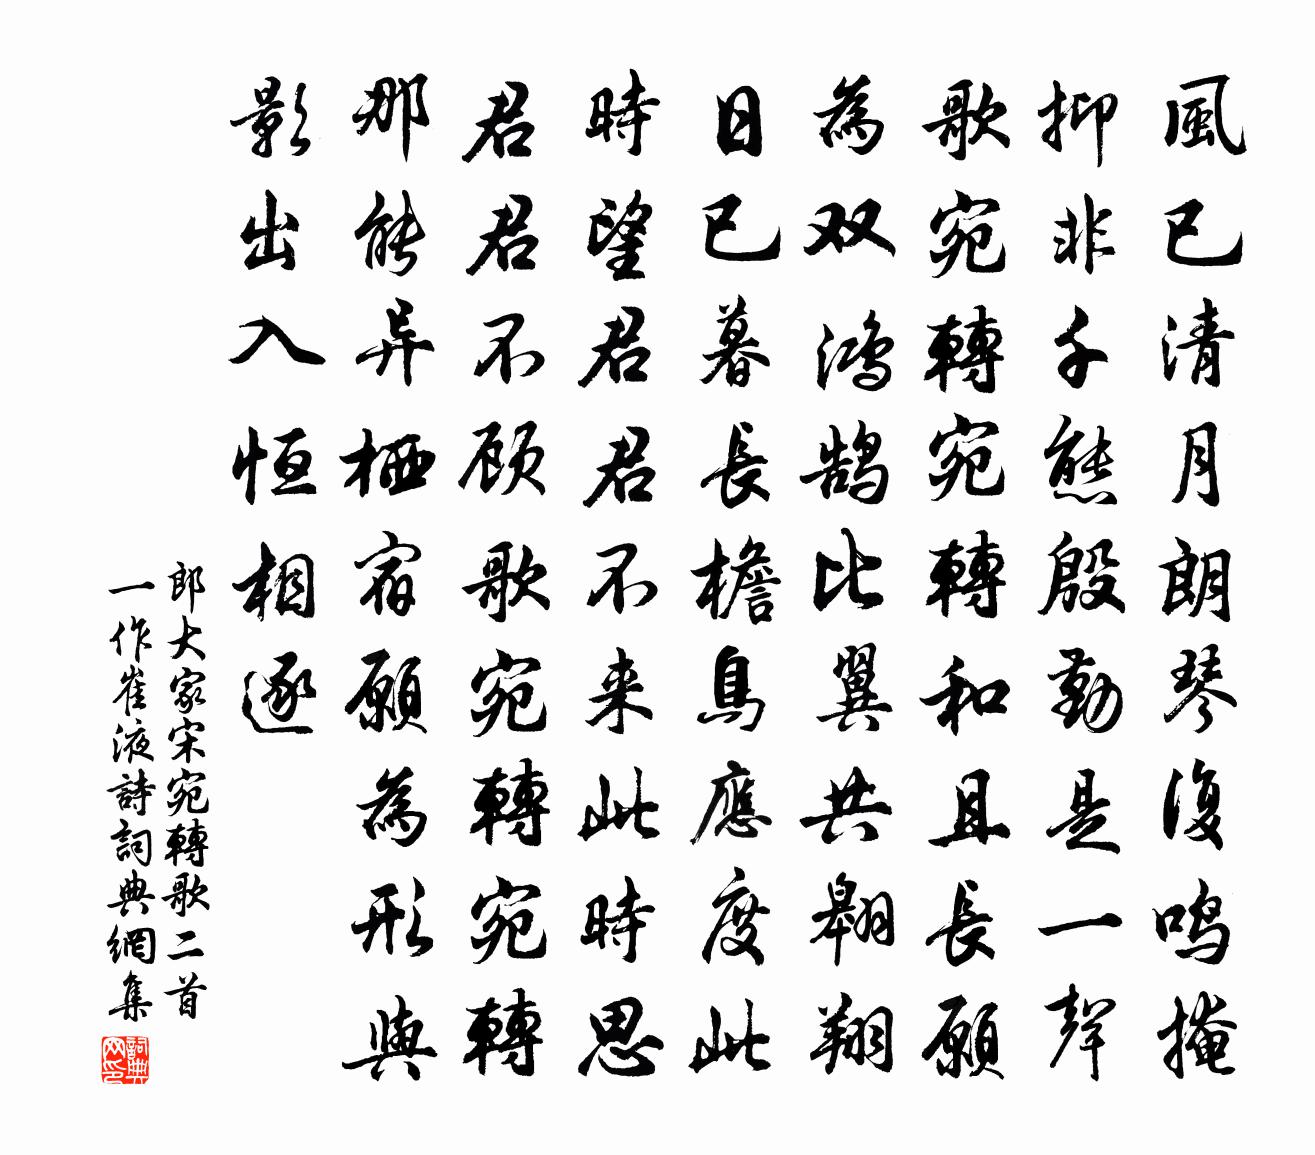 風已清月朗琴復鸣掩
抑非千態殷勤是一聲
歌宛轉宛轉和且長願
為双鴻鹄比翼共翱翔
日已暮長檐鳥應度此
時望君君不来此時思
君君不顾歌宛轉宛轉
那能异栖宿願為形與
影出入恒相逐
郎大家宋宛轉歌二首
一作崔液詩詞典網集
詞典网印